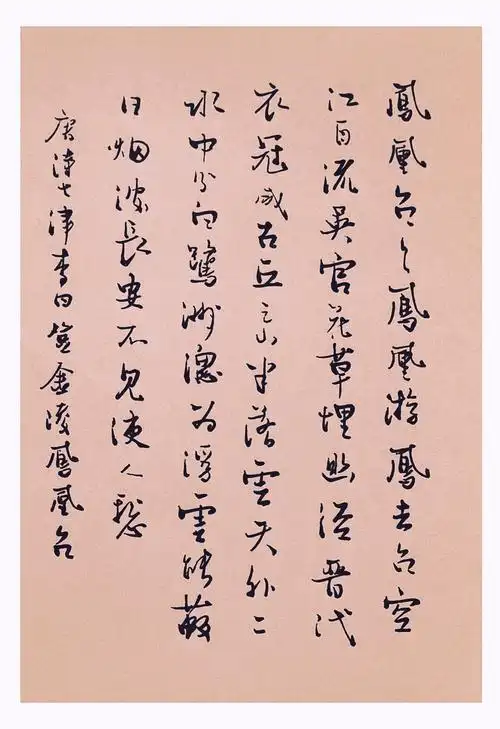 鳳凰台上鳳凰游鳳去台空
江自流吳宮花草埋幽徑晉代
衣冠成古丘三山半落雲天外二
水中分白鷺洲總为浮雲能蔽
日烟波長安不見使人愁
唐詩七律李白登金陵鳳凰台